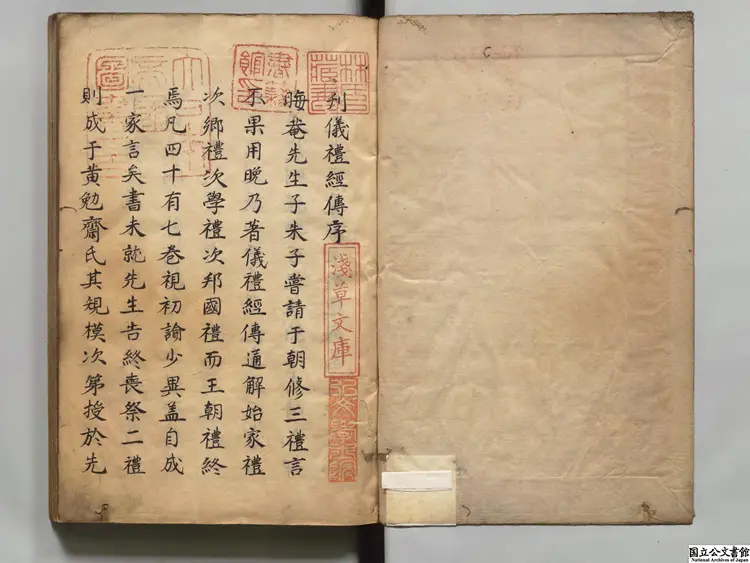 林氏藏書
刋儀禮經傳序
淺草文庫
弘文學士院
晦菴先生子朱子嘗請于朝修三禮言
書籍館印
不果用晚乃著儀禮經傳通解始家禮
次鄉禮次學禮次邦國禮而王朝禮終
焉凡四十有七巻視初論少異盖自成
一家言矣書未就先生告終喪祭二禮
則成于黄勉齋氏其規模次第授於先
国立公文書館
National Archives of Japan